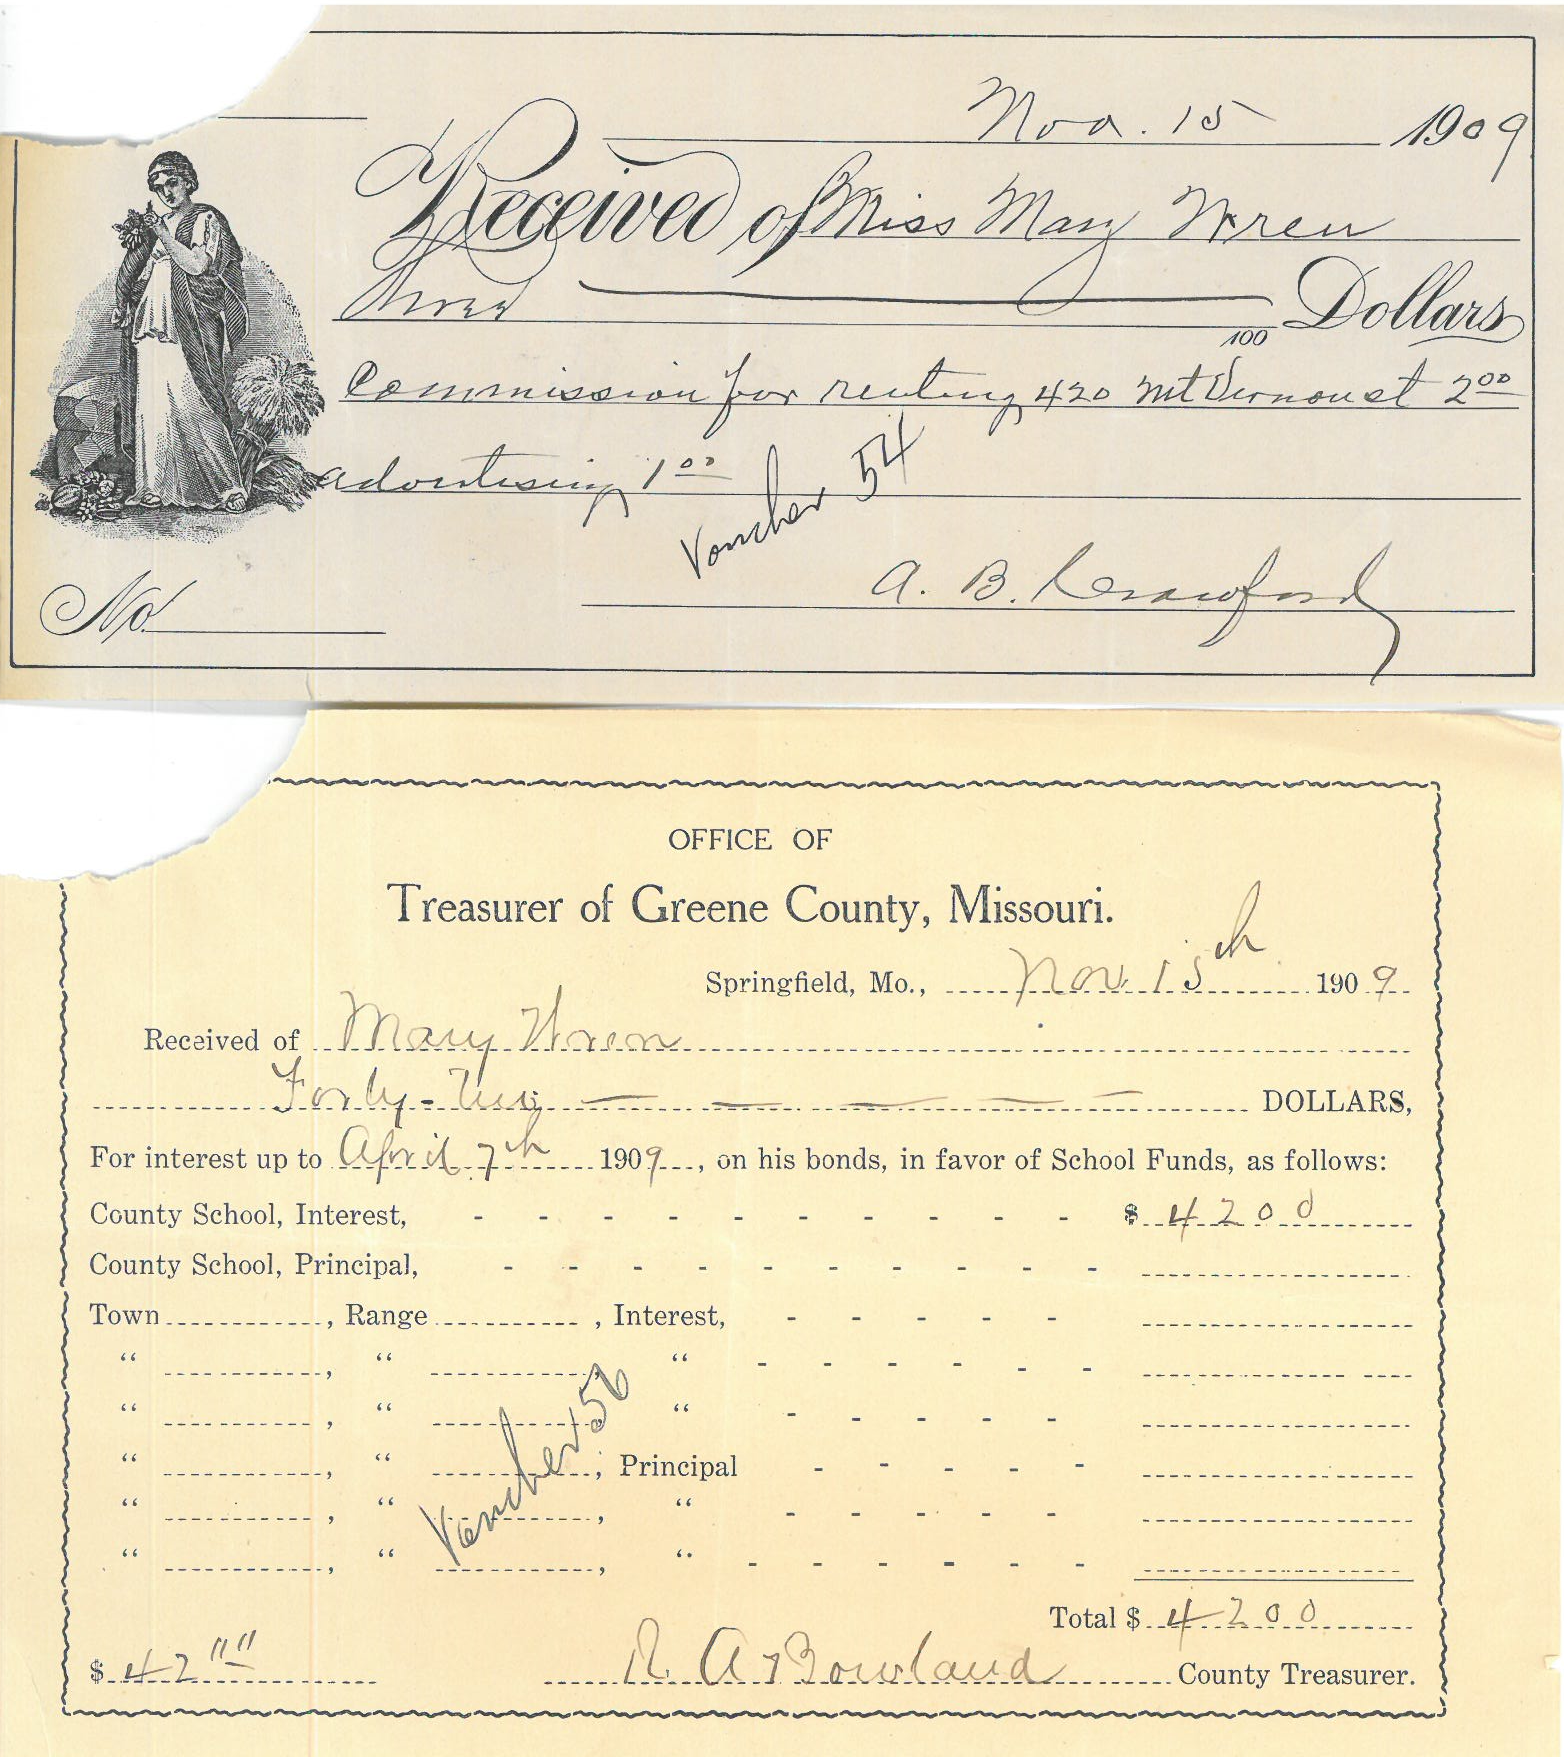 Nov. 15 1909
Received of Miss Mary Wren
Three 100 Dollars
Commission for renting 420 Mt Vernon st 2 00
advertising 1 00
Voucher 54
A. B. Crawford
No.
OFFICE OF
Treasurer of Greene County, Missouri.
Springfield, Mo., Nov. 15th 1909
Received of Mary Wren
Forty-Two DOLLARS,
For interest up to April 7th 1909, on his bonds, in favor of School Funds, as follows:
County School, Interest, - - - - - - - - - - $ 42 00
County School, Principal, - - - - - - - - - -
Town , Range , Interest, - - - - -
“ , “ , “ - - - - - -
“ , “ “ - - - - -
“ , “ , Principal - - - - -
“ , “ , “ - - - - -
“ , “ , “ - - - - - -
Voucher 56
Total $ 42 00
$ 42 "" R. A. Bowland County Treasurer.